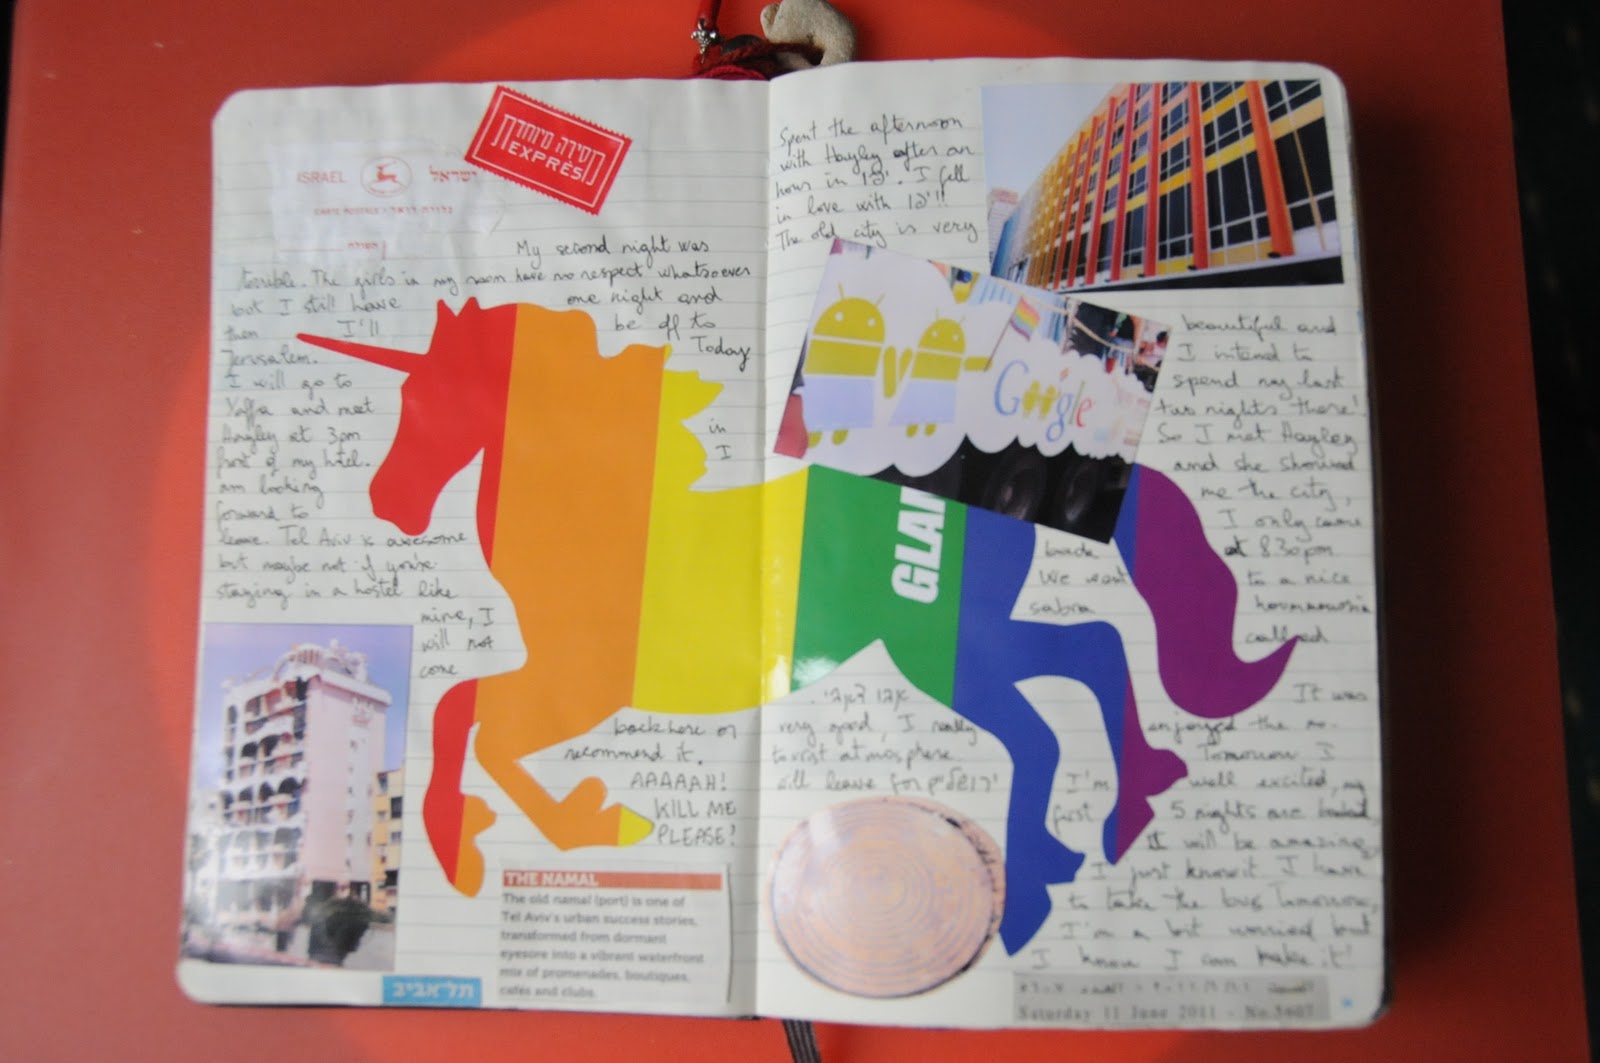 ISRAEL ישראל
CARTE POSTALE • גלוית-דואר
מסירה מיוחדת
EXPRÈS
My second night was
terrible. The girls in my room have no respect whatsoever
but I still have one night and
then I'll be off to
Jerusalem. Today
I will go to
Yaffa and meet
Hayley at 3pm in
front of my hotel. I
am looking
forward to
leave. Tel Aviv is awesome
but maybe not if you're
staying in a hostel like
mine, I
will not
come
back here or
recommend it.
AAAAAH!
KILL ME
PLEASE!
THE NAMAL
The old namal (port) is one of
Tel Aviv's urban success stories,
transformed from dormant
eyesore into a vibrant waterfront
mix of promenades, boutiques,
cafes and clubs.
תל־אביב
Spent the afternoon
with Hayley after an
hour in יפו. I fell
in love with יפו!!
The old city is very
Google
GLAM
beautiful and
I intend to
spend my last
two nights there!
So I met Hayley
and she showed
me the city,
I only came
back at 830pm
We went to a nice
sabra hoummousia
called
אבו דאבי. It was
very good, I really enjoyed the no-
tourist atmosphere. Tomorrow I
will leave for ירושלים I'm well excited, my
first 5 nights are booked
It will be amazing,
I just know it I have
to take the bus Tomorrow,
I'm a bit worried but
I know I can make it!
Saturday 11 June 2011 - No.5607